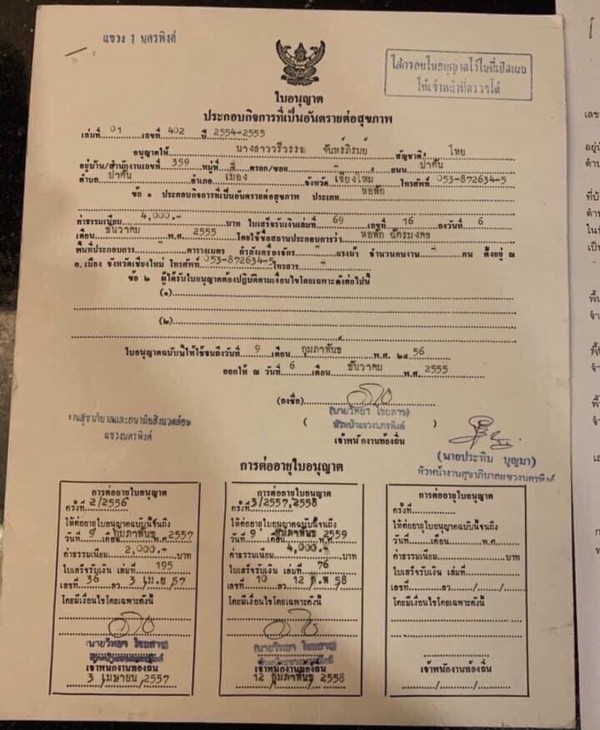 แขวง 1 นครพิงค์
ใส่กรอบใบอนุญาตไว้ในที่เปิดเผย
ให้เจ้าหน้าที่ตรวจได้
ใบอนุญาต
ประกอบกิจการที่เป็นอันตรายต่อสุขภาพ
เล่มที่ 01 เลขที่ 402 ปี 2554-2555
อนุญาตให้ นางสาววรีวรรณ จันทร์ภิรมย์ สัญชาติ ไทย
อยู่บ้าน/สำนักงานเลขที่ 359 หมู่ที่ ตรอก/ซอย - ถนน ป่าตัน
ตำบล ป่าตัน อำเภอ เมือง จังหวัด เชียงใหม่ โทรศัพท์ 053-872634-5
ข้อ 1 ประกอบกิจการที่เป็นอันตรายต่อสุขภาพ ประเภท หอพัก
ค่าธรรมเนียม 4,000.- บาท ใบเสร็จรับเงินเล่มที่ 69 เลขที่ 16 ลงวันที่ 6
เดือน ธันวาคม พ.ศ. 2555 โดยใช้ชื่อสถานประกอบการว่า หอพัก ฉัตรมงคล
พื้นที่ประกอบการ - ตารางเมตร กำลังเครื่องจักร - แรงม้า จำนวนคนงาน - คน ตั้งอยู่ ณ
อ.เมือง จังหวัดเชียงใหม่ โทรศัพท์ 053-872634-5 โทรสาร -
ข้อ ๒ ผู้ได้รับใบอนุญาตต้องปฏิบัติตามเงื่อนไขโดยเฉพาะดังต่อไปนี้
(๑)
(๒)
ใบอนุญาตฉบับนี้ให้ใช้จนถึงวันที่ 9 เดือน กุมภาพันธ์ พ.ศ. ๒๕ 56
ออกให้ ณ วันที่ 6 เดือน ธันวาคม พ.ศ. 2555
(ลงชื่อ)
(นายวิทยา ไชยสาร)
หัวหน้าแขวงนครพิงค์
เจ้าพนักงานท้องถิ่น
งานสุขาภิบาลและอนามัยสิ่งแวดล้อม
แขวงนครพิงค์
(นายประทีบ บุญมา)
หัวหน้างานสุขาภิบาลแขวงนครพิงค์
การต่ออายุใบอนุญาต
การต่ออายุใบอนุญาต
ครั้งที่ 2/2556
ให้ต่ออายุใบอนุญาตฉบับนี้จนถึง
วันที่ 9 กุมภาพันธ์ 2557
ค่าธรรมเนียม 2,000.- บาท
ใบเสร็จรับเงิน เล่มที่ 195
เลขที่ 36 ลว. 3 เม.ย 57
โดยมีเงื่อนไขโดยเฉพาะดังนี้
(นายวิทยา ไชยสาร)
เจ้าพนักงานท้องถิ่น
3 เมษายน 2557
การต่ออายุใบอนุญาต
ครั้งที่ 3/2557,2558
ให้ต่ออายุใบอนุญาตฉบับนี้จนถึง
วันที่ 9 กุมภาพันธ์ 2559
ค่าธรรมเนียม 4,000.- บาท
ใบเสร็จรับเงิน เล่มที่ 76
เลขที่ 10 ลว. 12 ก.พ 58
โดยมีเงื่อนไขโดยเฉพาะดังนี้
(นายวิทยา ไชยสาร)
เจ้าพนักงานท้องถิ่น
12 กุมภาพันธ์ 2558
การต่ออายุใบอนุญาต
ครั้งที่
ให้ต่ออายุใบอนุญาตฉบับนี้จนถึง
วันที่ เดือน พ.ศ.
ค่าธรรมเนียม บาท
ใบเสร็จรับเงิน เล่มที่
เลขที่ ลว. / /
โดยมีเงื่อนไขโดยเฉพาะดังนี้
เจ้าพนักงานท้องถิ่น
/ /